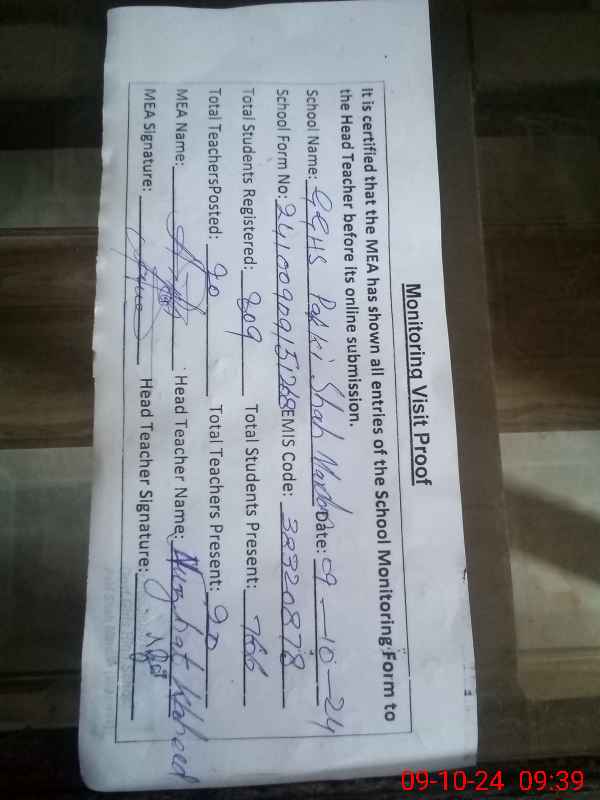 Monitoring Visit Proof
It is certified that the MEA has shown all entries of the School Monitoring Form to
the Head Teacher before its online submission.
School Name: GGHS Pakki Shah Mardan Date: 09-10-24
School Form No: EMIS Code: 38320878
Total Students Registered: 809 Total Students Present: 766
Total TeachersPosted: 20 Total Teachers Present: 20
MEA Name: Head Teacher Name: Nuzhat Waheed
MEA Signature: Head Teacher Signature:
09-10-24 09:39